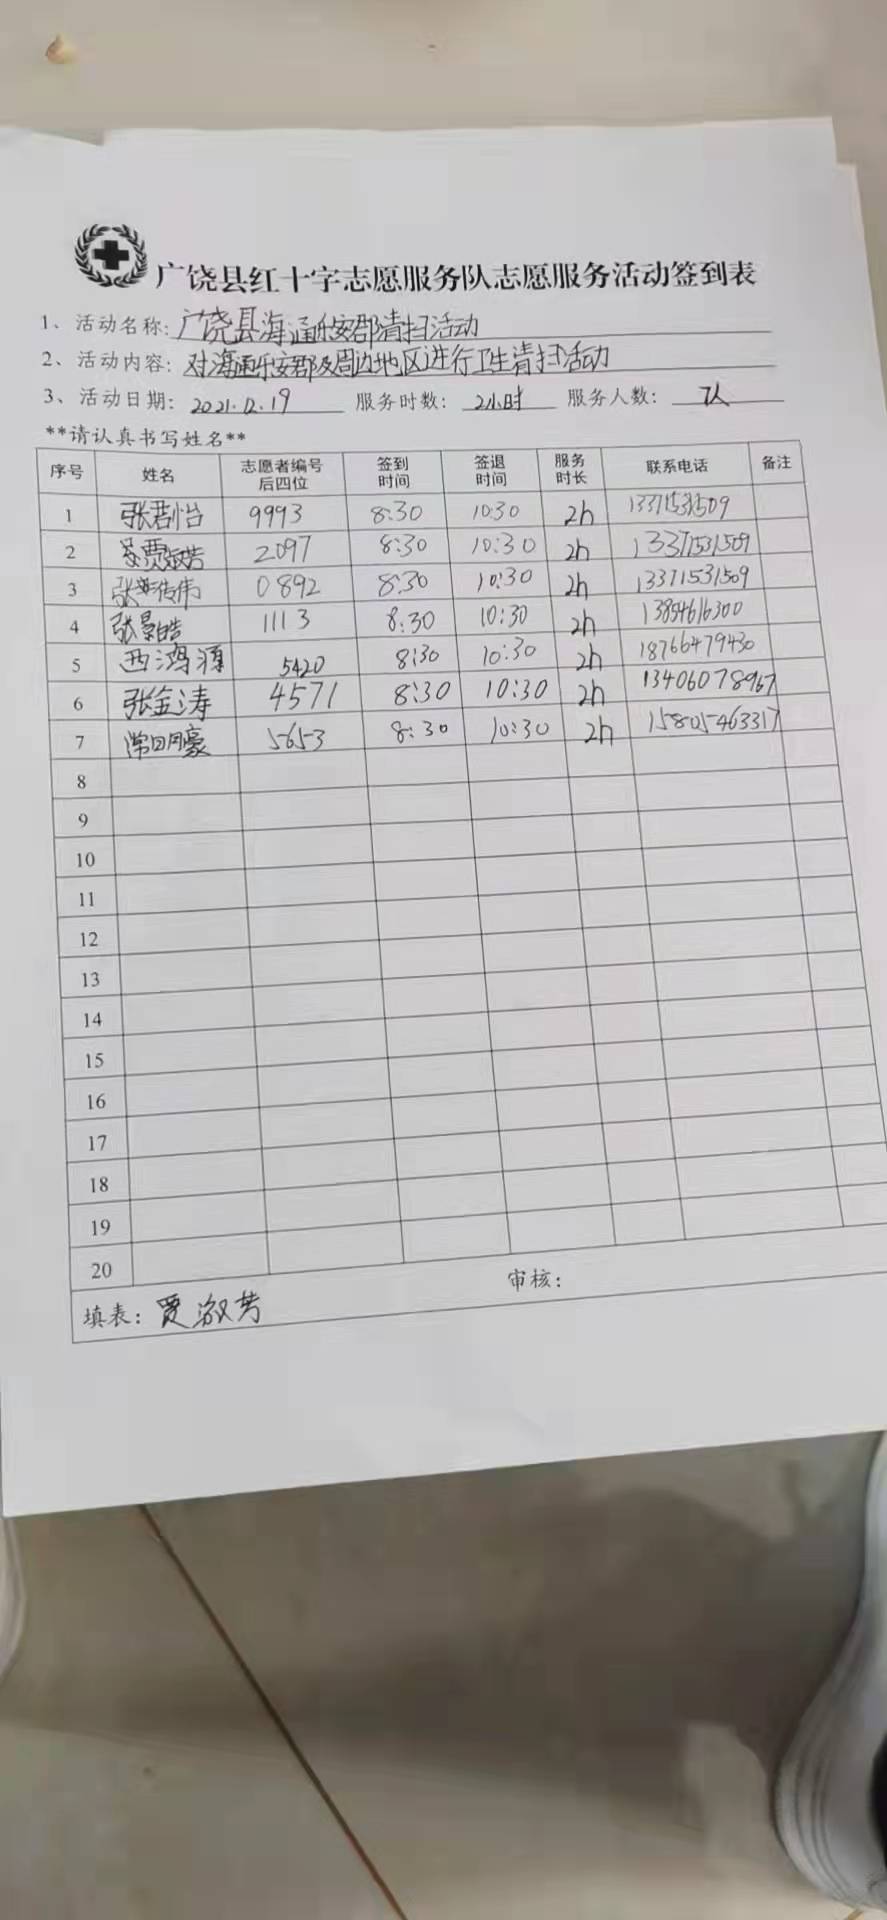 广饶县红十字志愿服务队志愿服务活动签到表
1、活动名称:广饶县海通乐安郡清扫活动
2、活动内容:对海通乐安郡及周边地区进行卫生清扫活动
3、活动日期:2021.12.19 服务时数:2小时 服务人数:7人
**请认真书写姓名**
序号 姓名 志愿者编号后四位 签到时间 签退时间 服务时长 联系电话 备注
1 张君怡 9993 8:30 10:30 2h 13371531509
2 2097 8:30 10:30 2h 13371531509
3 0892 8:30 10:30 2h 13371531509
4 张景皓 1113 8:30 10:30 2h 13854616300
5 西鸿源 5420 8:30 10:30 2h 18766479430
6 张金涛 4571 8:30 10:30 2h 13406078967
7 常明豪 5653 8:30 10:30 2h 15805463317
8
9
10
11
12
13
14
15
16
17
18
19
20
填表:贾淑芳 审核: